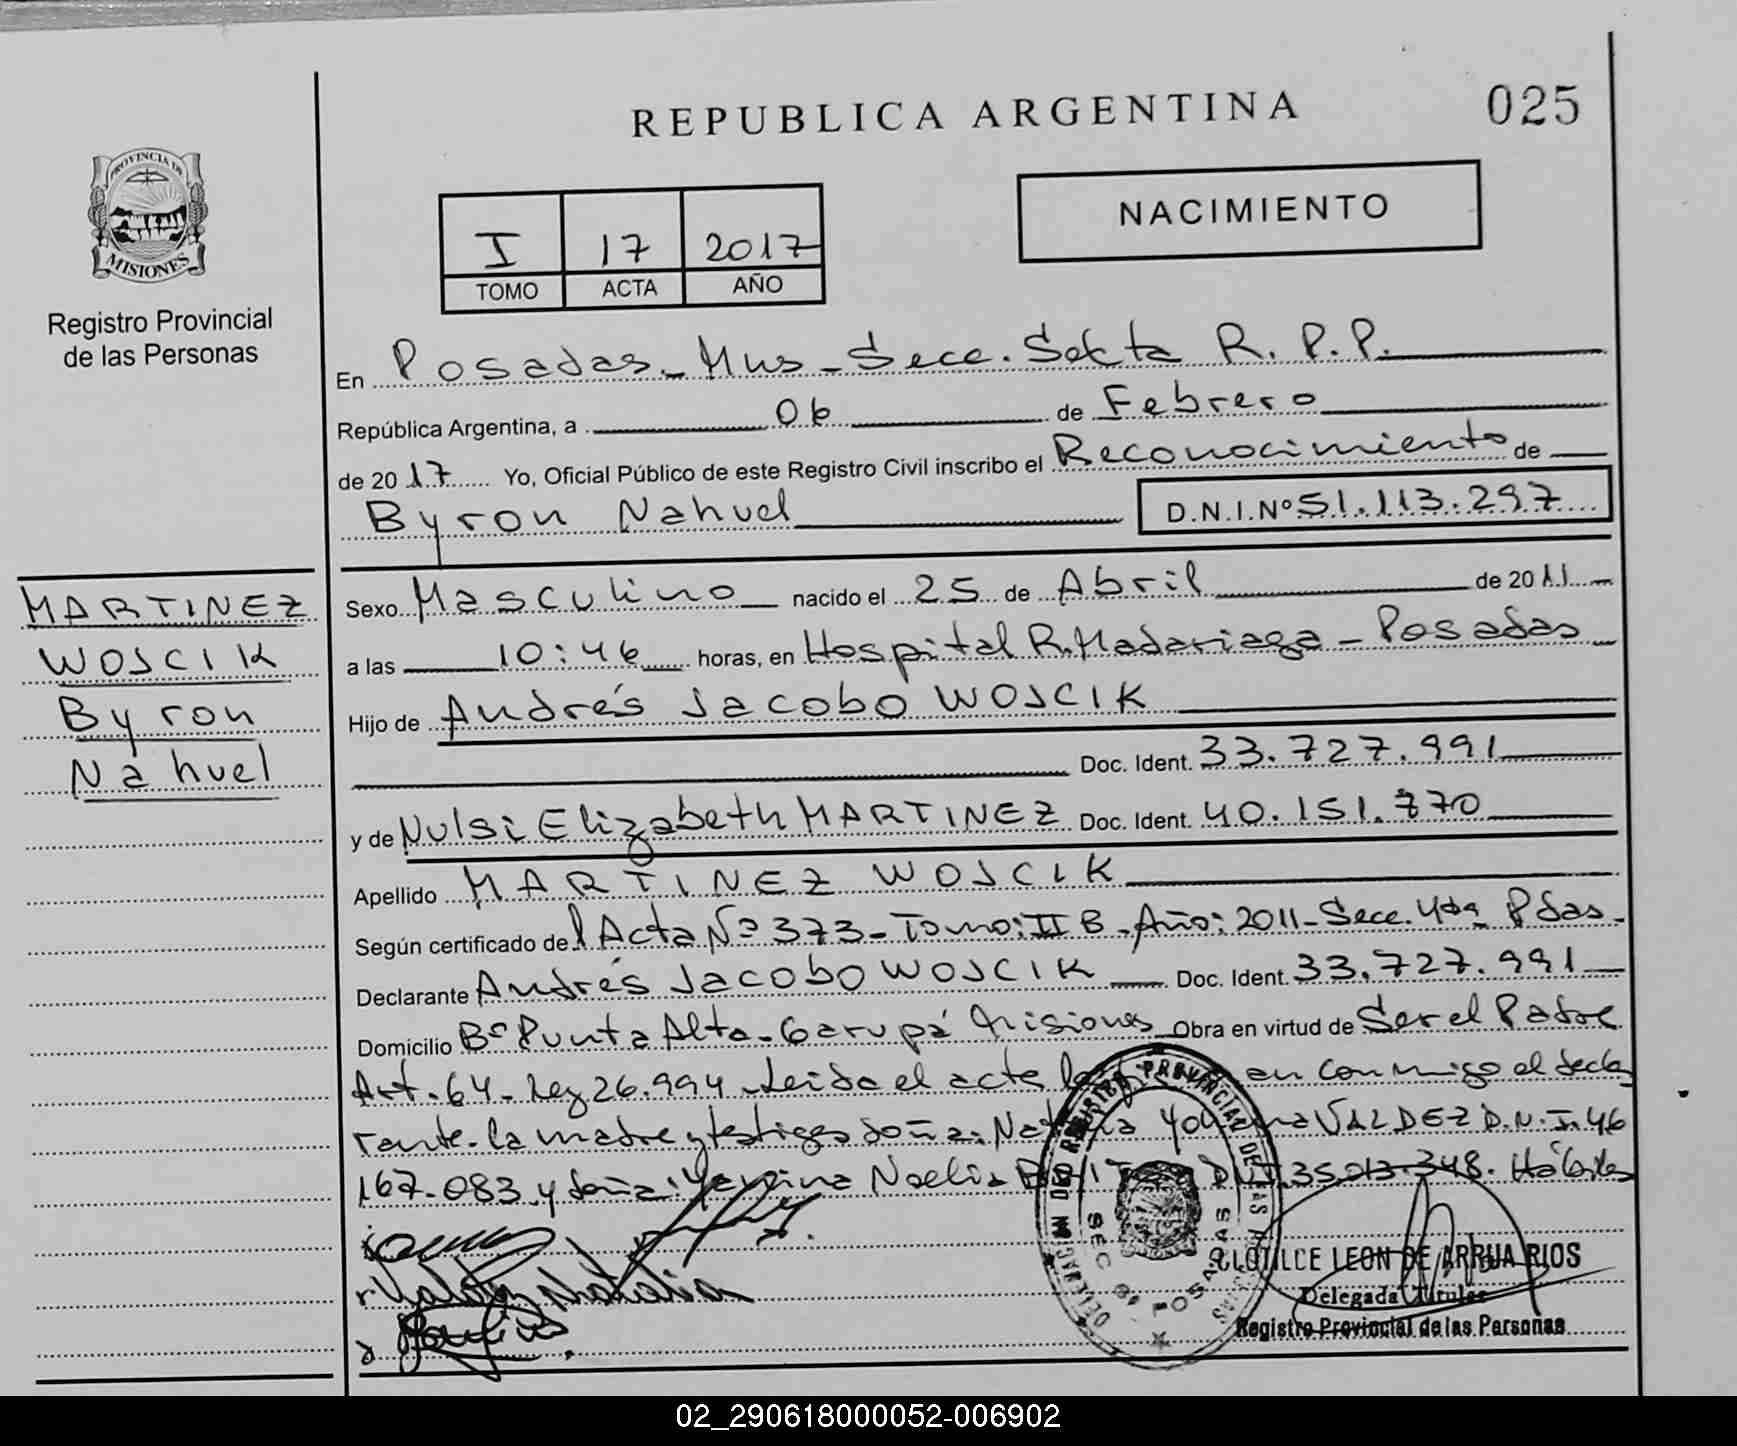 REPUBLICA ARGENTINA
025
PROVINCIA DE
MISIONES
Registro Provincial
de las Personas
NACIMIENTO
I 17 2017
TOMO ACTA AÑO
En Posadas - Mns - Secc. Sexta R. P. P.
República Argentina, a 06 de Febrero
de 2017 Yo, Oficial Público de este Registro Civil inscribo el Reconocimiento de
Byron Nahuel D.N.I.Nº 51.113.297
MARTINEZ
WOJCIK
Byron
Nahuel
Sexo Masculino nacido el 25 de Abril de 2011
a las 10:46 horas, en Hospital R. Madariaga - Posadas
Hijo de Andrés Jacobo WOJCIK
Doc. Ident. 33.727.991
y de Nulsi Elizabeth MARTINEZ Doc. Ident. 40.151.770
Apellido MARTINEZ WOJCIK
Según certificado del Acta Nº 373 - Tomo: II B - Año: 2011 - Secc. 4ta Pdas -
Declarante Andrés Jacobo WOJCIK Doc. Ident. 33.727.991
Domicilio Bº Punta Alta - Garupá Misiones Obra en virtud de Ser el Padre
Art. 64 - Ley 26.994 - Leida el acta la en conmigo el decla
rante - la madre y testigos doña: VALDEZ D.N.I. 46
167.083 y doña: Noelia 35.013.348. Hábiles
Valdez Natalia
REGISTRO PROVINCIAL DE LAS
SEC 6ª POSADAS
CLOTILDE LEON DE ARRUA RIOS
Delegada Titular
Registro Provincial de las Personas
02_290618000052-006902